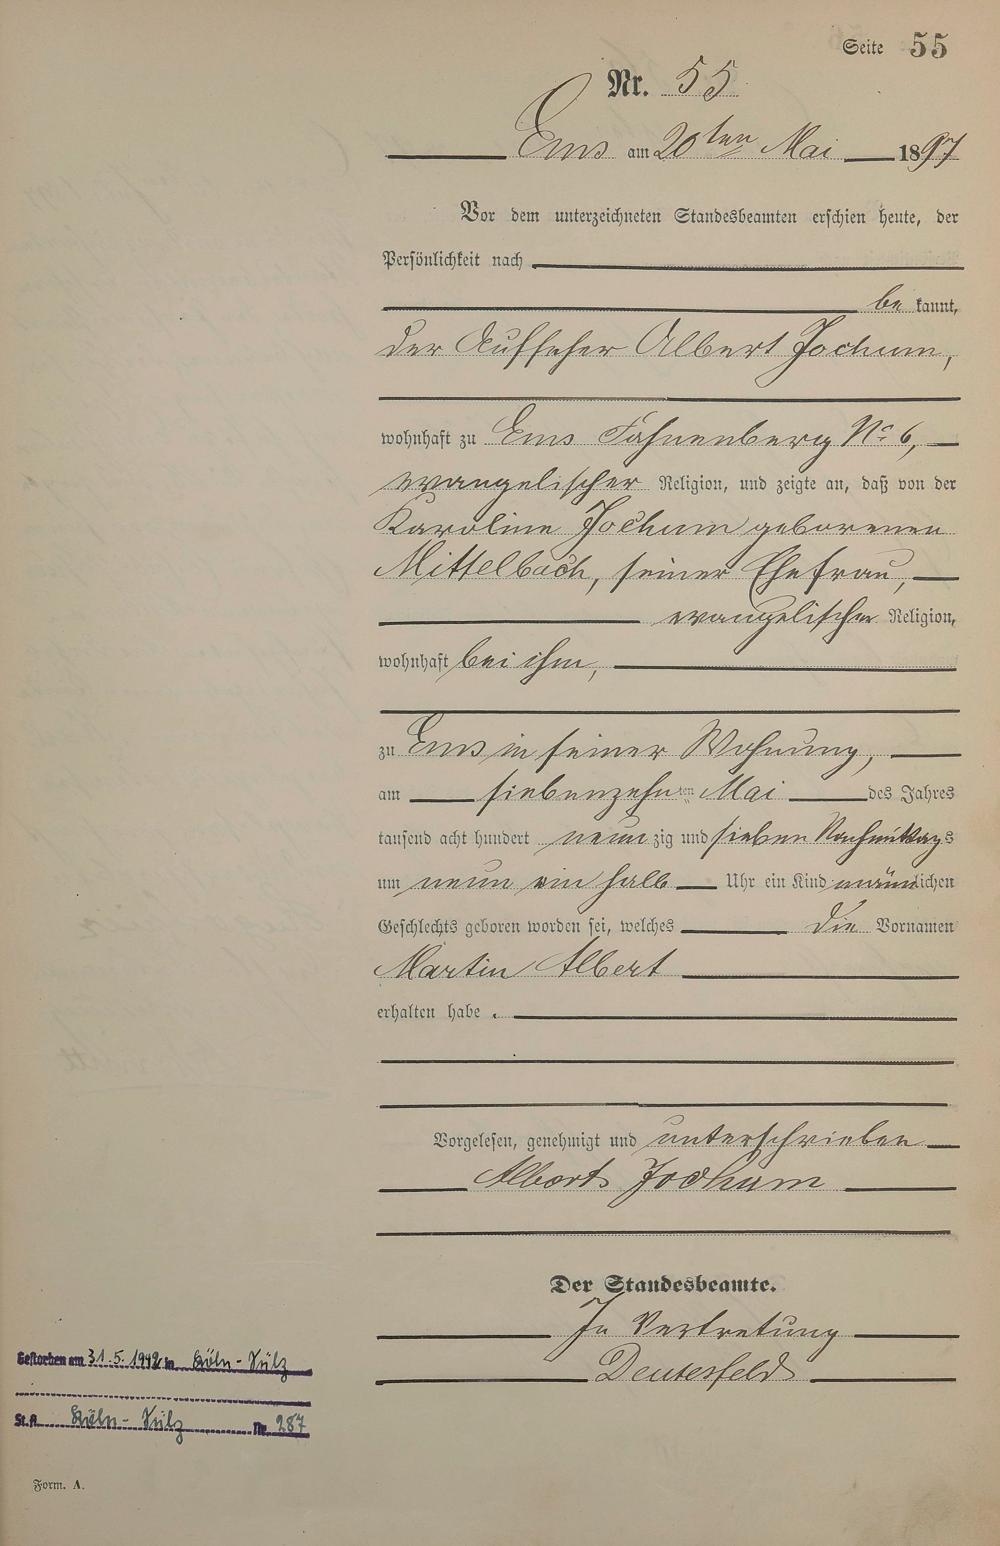 Seite 55
Nr. 55
Ems am 20ten Mai 1897
Vor dem unterzeichneten Standesbeamten erschien heute, der
Persönlichkeit nach
be kannt,
der Aufseher Albert Jochum,
wohnhaft zu Ems Fahnenberg No 6,
evangelischer Religion, und zeigte an, daß von der
Karoline Jochum geborenen
Mittelbach, seiner Ehefrau,
evangelischer Religion,
wohnhaft bei ihm,
zu Ems in seiner Wohnung,
am siebenzehnten Mai des Jahres
tausend acht hundert neunzig und sieben Nachmittags
um neun ein halb Uhr ein Kind männlichen
Geschlechts geboren worden sei, welches die Vornamen
Martin Albert
erhalten habe.
Vorgelesen, genehmigt und unterschrieben
Albert Jochum
Der Standesbeamte.
In Vertretung
Gestorben am 31.5.1942 in Köln-Sülz
St.A. Köln-Sülz Nr. 287
Form. A.